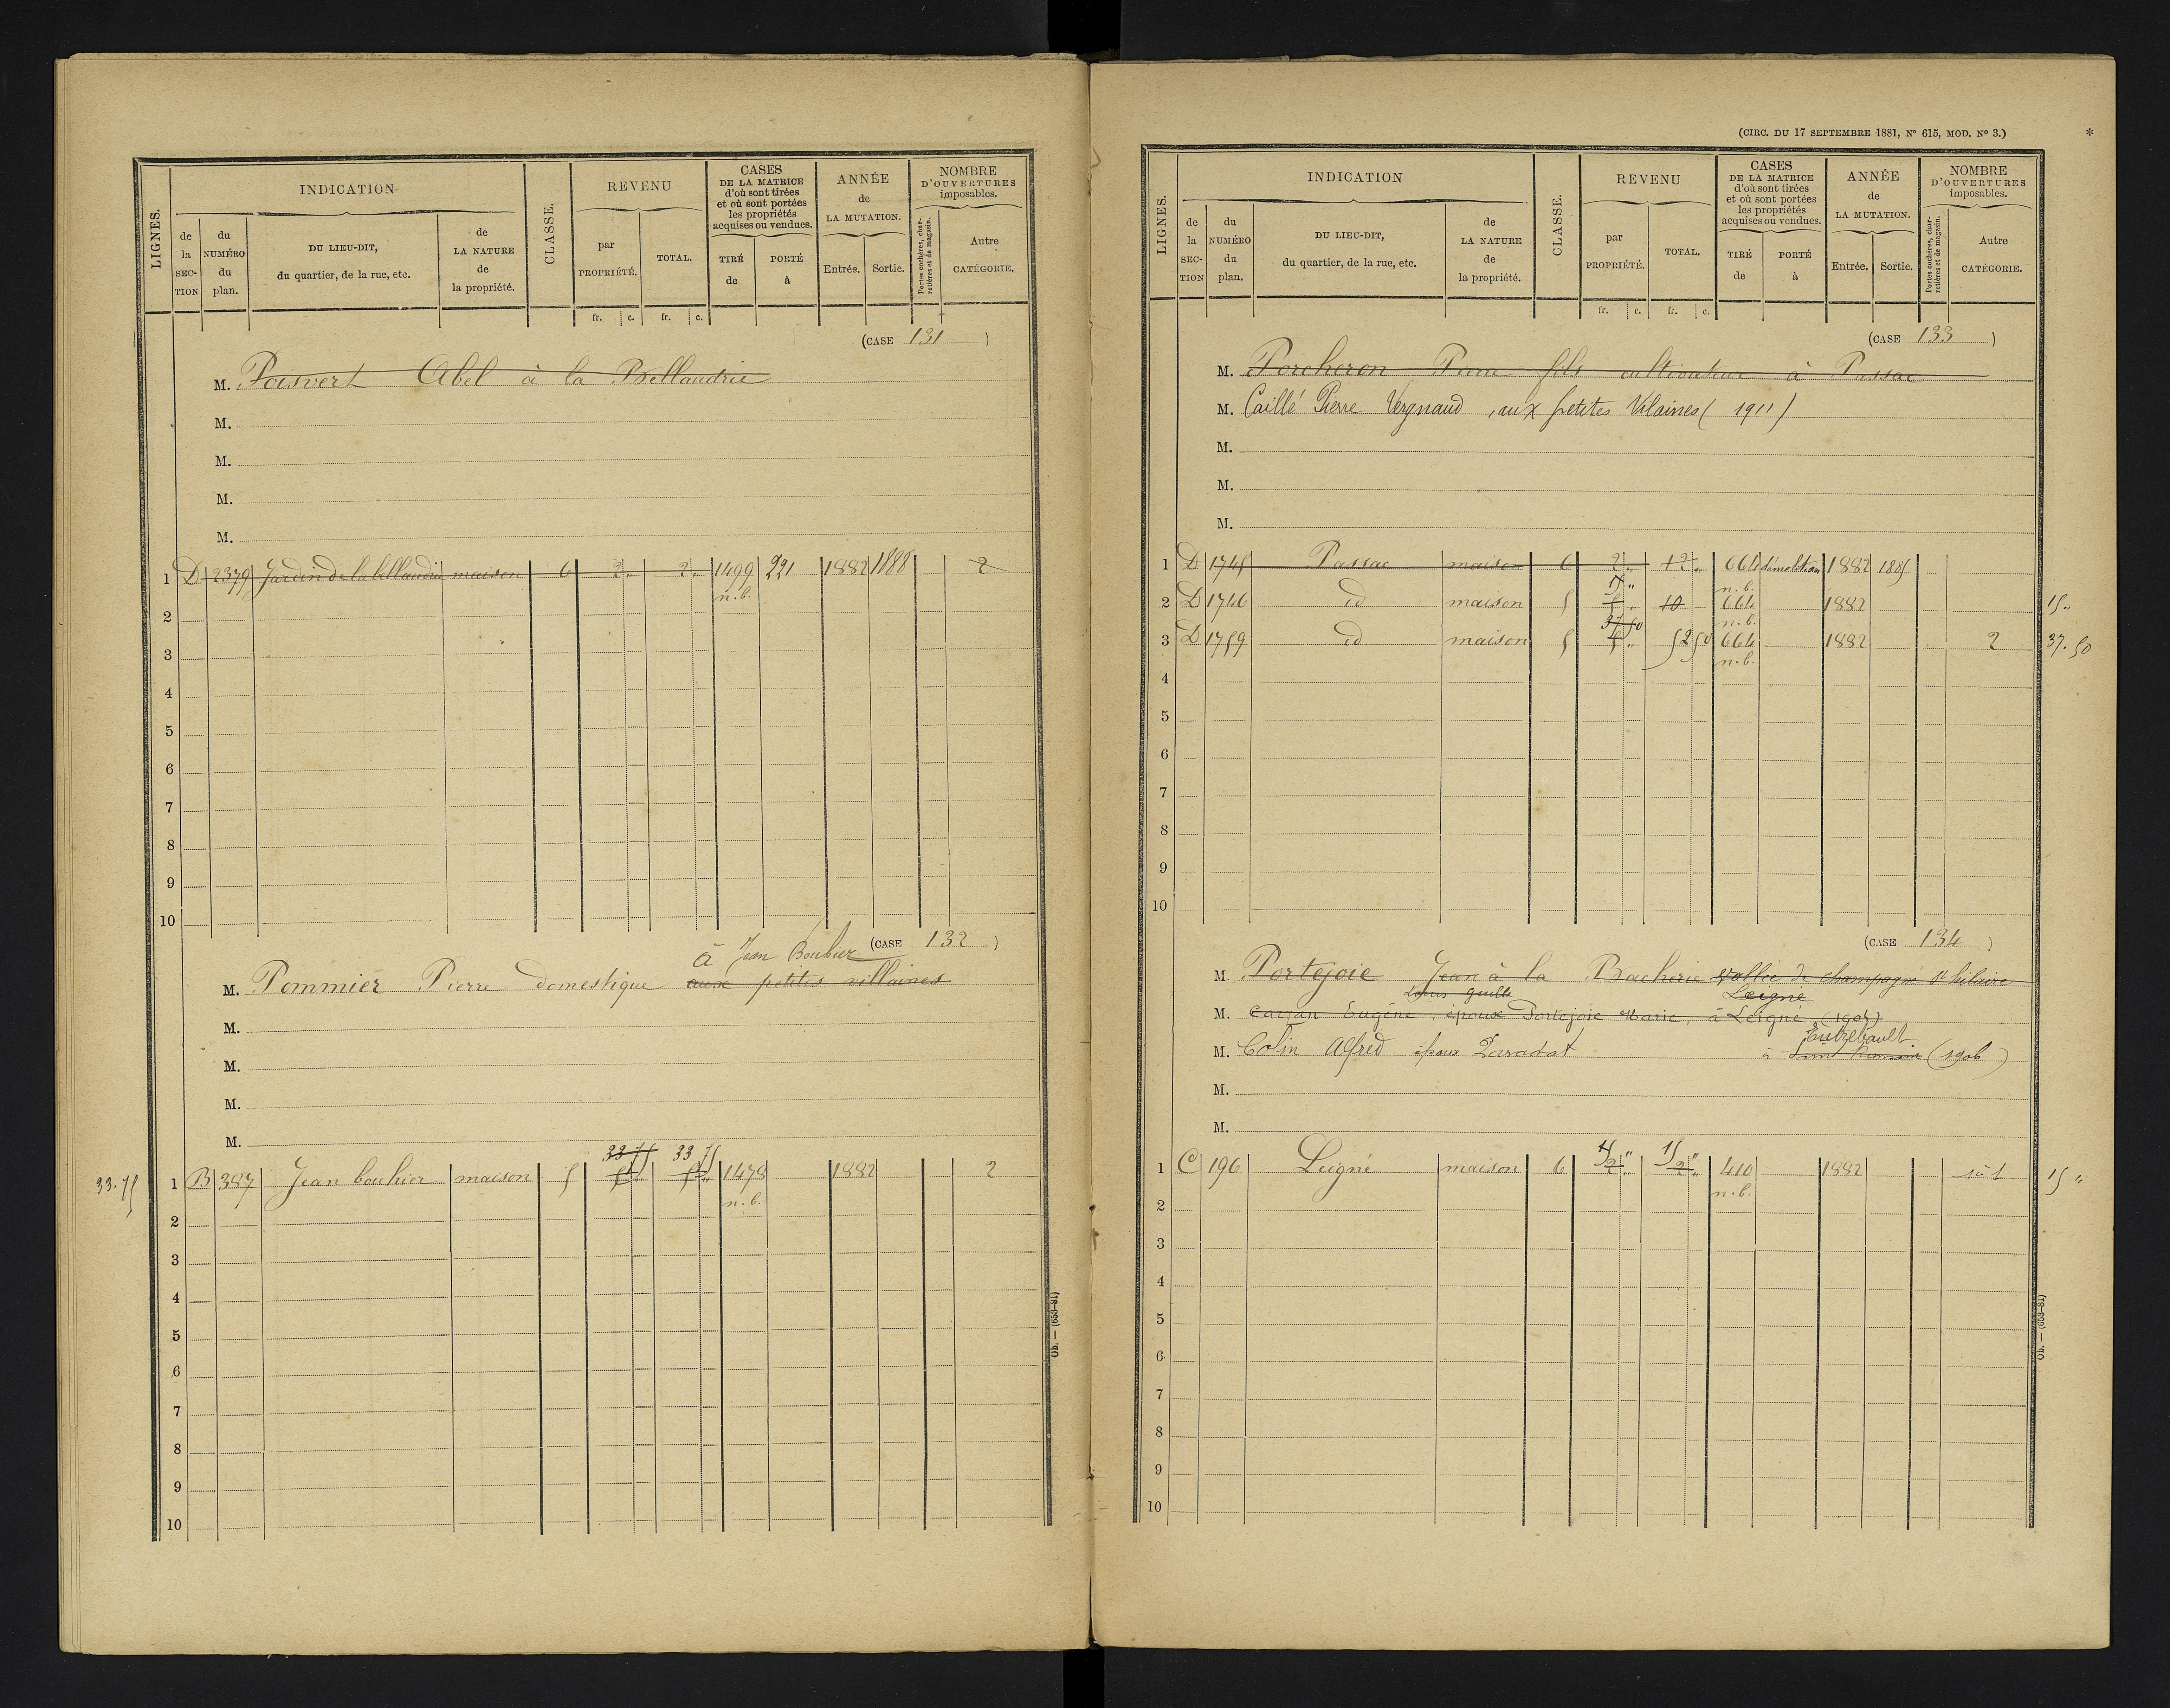 LIGNES.
INDICATION
de la SECTION
du NUMÉRO du plan.
DU LIEU-DIT, du quartier, de la rue, etc.
de LA NATURE de la propriété.
CLASSE.
REVENU
par PROPRIÉTÉ.
TOTAL.
CASES DE LA MATRICE d'où sont tirées et où sont portées les propriétés acquises ou vendues.
TIRÉ de
PORTÉ à
ANNÉE de LA MUTATION.
Entrée.
Sortie.
NOMBRE D'OUVERTURES imposables.
Portes cochères, charretières et de magasin.
Autre CATÉGORIE.
fr. c. fr. c.
(CASE 131 )
M. Poisvert Abel à la Bellaudrie
M.
M.
M.
M.
1 D 2379 Jardin de la bellaudrie maison 6 2 " 2 " 1499 221 1882 1888 2
n.b.
2
3
4
5
6
7
8
9
10
(CASE 132 )
à Jean Bouhier
M. Pommier Pierre domestique aux petites villaines
M.
M.
M.
M.
33 75 33 75
33.75 1 B 387 Jean bouhier maison 5 5 " 5 " 1478 1882 2
n.b.
2
3
4
5
6
7
8
9
10
Ob. — (653-81)
(CIRC. DU 17 SEPTEMBRE 1881, N° 615, MOD. N° 3.)
*
LIGNES.
INDICATION
de la SECTION
du NUMÉRO du plan.
DU LIEU-DIT, du quartier, de la rue, etc.
de LA NATURE de la propriété.
CLASSE.
REVENU
par PROPRIÉTÉ.
TOTAL.
CASES DE LA MATRICE d'où sont tirées et où sont portées les propriétés acquises ou vendues.
TIRÉ de
PORTÉ à
ANNÉE de LA MUTATION.
Entrée.
Sortie.
NOMBRE D'OUVERTURES imposables.
Portes cochères, charretières et de magasin.
Autre CATÉGORIE.
fr. c. fr. c.
(CASE 133 )
M. Porcheron Pierre fils cultivateur à Pussac
M. Caillé Pierre Vergnaud, aux petites Vilaines (1911)
M.
M.
M.
1 D 1745 Pussac maison 6 2 " 12 " 664 démolition 1882 1885
15 " n.b.
2 D 1746 id maison 5 5 " 10 664 1882 15 "
37 50 n.b.
3 D 1759 id maison 5 5 " 52 50 664 1882 2 37.50
n.b.
4
5
6
7
8
9
10
(CASE 134 )
M. Portejoie Jean à la Bacherie vallée de champagné St hilaire
Leigné
M. Eugène, époux Portejoie Marie, à Leigné (1905)
M. Colin Alfred époux Paradot à (1906)
M.
M.
15 " 15 "
1 C 196 Leigné maison 6 2 " 2 " 410 1882 1 15 "
n.b.
2
3
4
5
6
7
8
9
10
Ob. — (653-81)